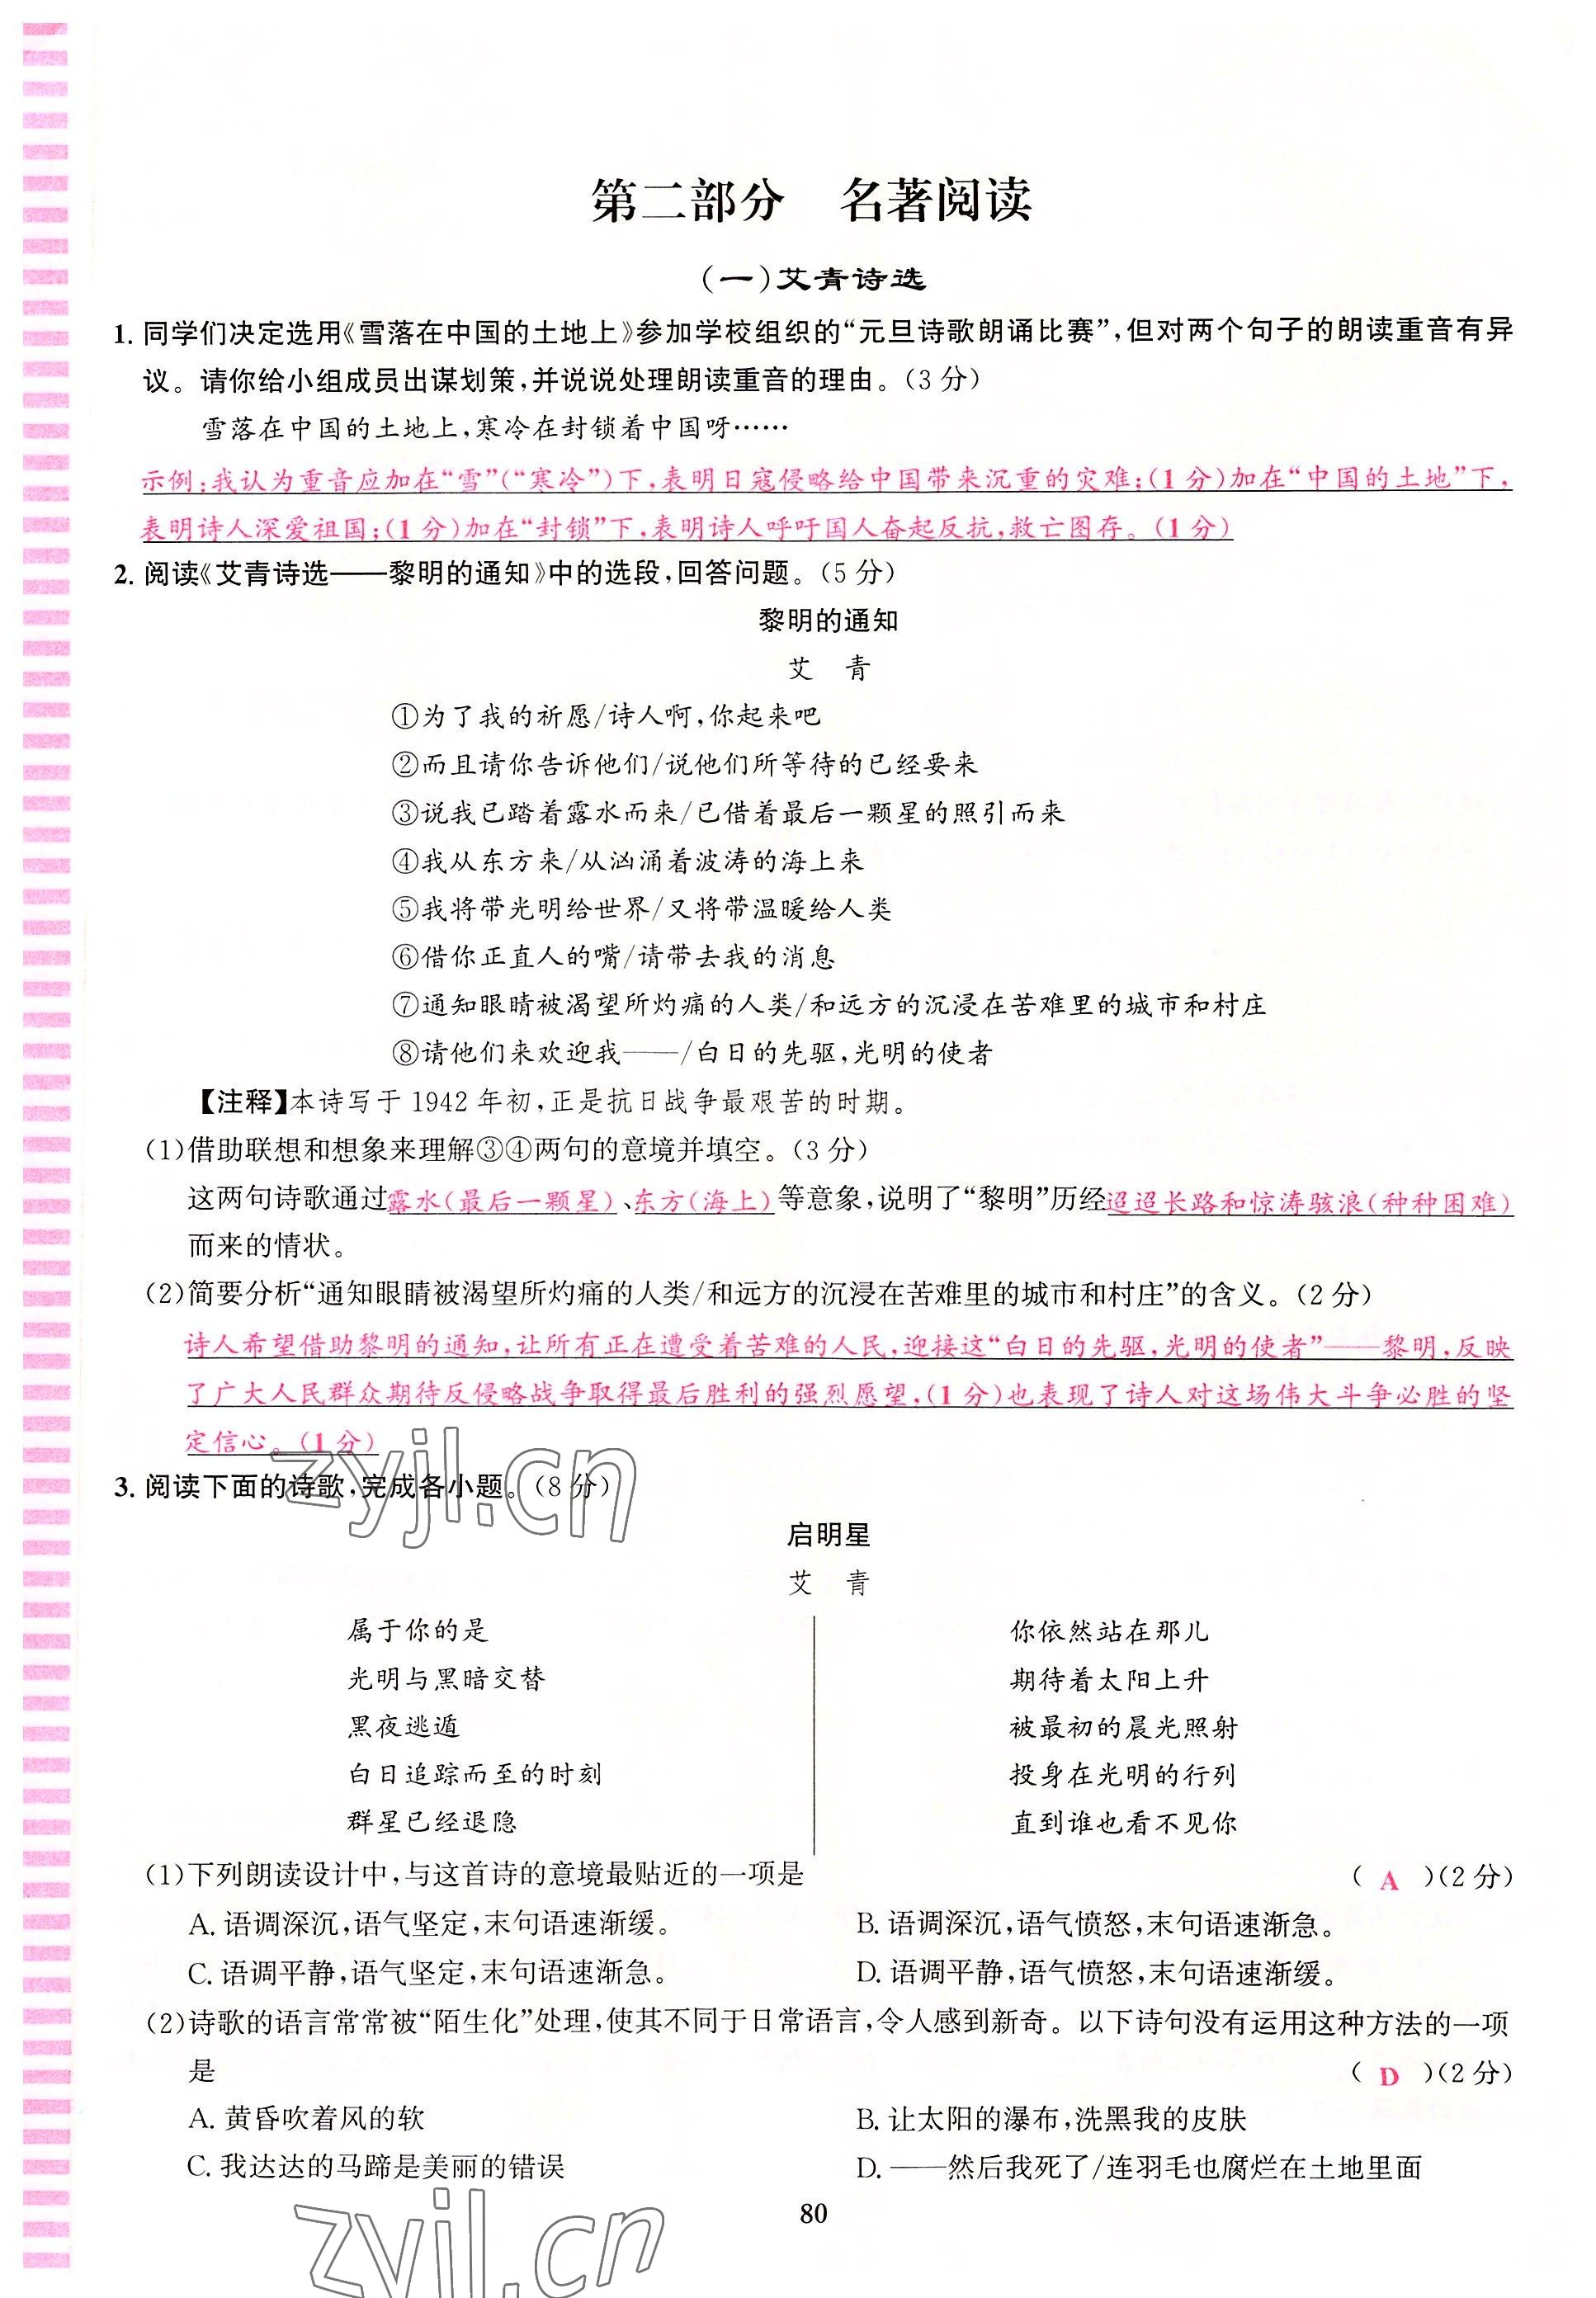 第二部分　名著阅读
(一)艾青诗选
1. 同学们决定选用《雪落在中国的土地上》参加学校组织的“元旦诗歌朗诵比赛”,但对两个句子的朗读重音有异
议。请你给小组成员出谋划策,并说说处理朗读重音的理由。(3 分)
雪落在中国的土地上,寒冷在封锁着中国呀……
示例:我认为重音应加在“雪”(“寒冷”)下,表明日寇侵略给中国带来沉重的灾难;(1 分)加在“中国的土地”下,
表明诗人深爱祖国;(1 分)加在“封锁”下,表明诗人呼吁国人奋起反抗,救亡图存。(1 分)
2. 阅读《艾青诗选——黎明的通知》中的选段,回答问题。(5 分)
黎明的通知
艾　青
①为了我的祈愿/诗人啊,你起来吧
②而且请你告诉他们/说他们所等待的已经要来
③说我已踏着露水而来/已借着最后一颗星的照引而来
④我从东方来/从汹涌着波涛的海上来
⑤我将带光明给世界/又将带温暖给人类
⑥借你正直人的嘴/请带去我的消息
⑦通知眼睛被渴望所灼痛的人类/和远方的沉浸在苦难里的城市和村庄
⑧请他们来欢迎我——/白日的先驱,光明的使者
【注释】本诗写于 1942 年初,正是抗日战争最艰苦的时期。
(1)借助联想和想象来理解③④两句的意境并填空。(3 分)
这两句诗歌通过露水(最后一颗星)、东方(海上)等意象,说明了“黎明”历经迢迢长路和惊涛骇浪(种种困难)
而来的情状。
(2)简要分析“通知眼睛被渴望所灼痛的人类/和远方的沉浸在苦难里的城市和村庄”的含义。(2 分)
诗人希望借助黎明的通知,让所有正在遭受着苦难的人民,迎接这“白日的先驱,光明的使者”——黎明,反映
了广大人民群众期待反侵略战争取得最后胜利的强烈愿望,(1 分)也表现了诗人对这场伟大斗争必胜的坚
定信心。(1 分)
zyjl.cn
3. 阅读下面的诗歌,完成各小题。(8 分)
启明星
艾　青
属于你的是
光明与黑暗交替
黑夜逃遁
白日追踪而至的时刻
群星已经退隐
你依然站在那儿
期待着太阳上升
被最初的晨光照射
投身在光明的行列
直到谁也看不见你
(1)下列朗读设计中,与这首诗的意境最贴近的一项是 ( A )(2 分)
A. 语调深沉,语气坚定,末句语速渐缓。 B. 语调深沉,语气愤怒,末句语速渐急。
C. 语调平静,语气坚定,末句语速渐急。 D. 语调平静,语气愤怒,末句语速渐缓。
(2)诗歌的语言常常被“陌生化”处理,使其不同于日常语言,令人感到新奇。以下诗句没有运用这种方法的一项
是 ( D )(2 分)
A. 黄昏吹着风的软 B. 让太阳的瀑布,洗黑我的皮肤
C. 我达达的马蹄是美丽的错误 D. ——然后我死了/连羽毛也腐烂在土地里面
80
zyjl.cn